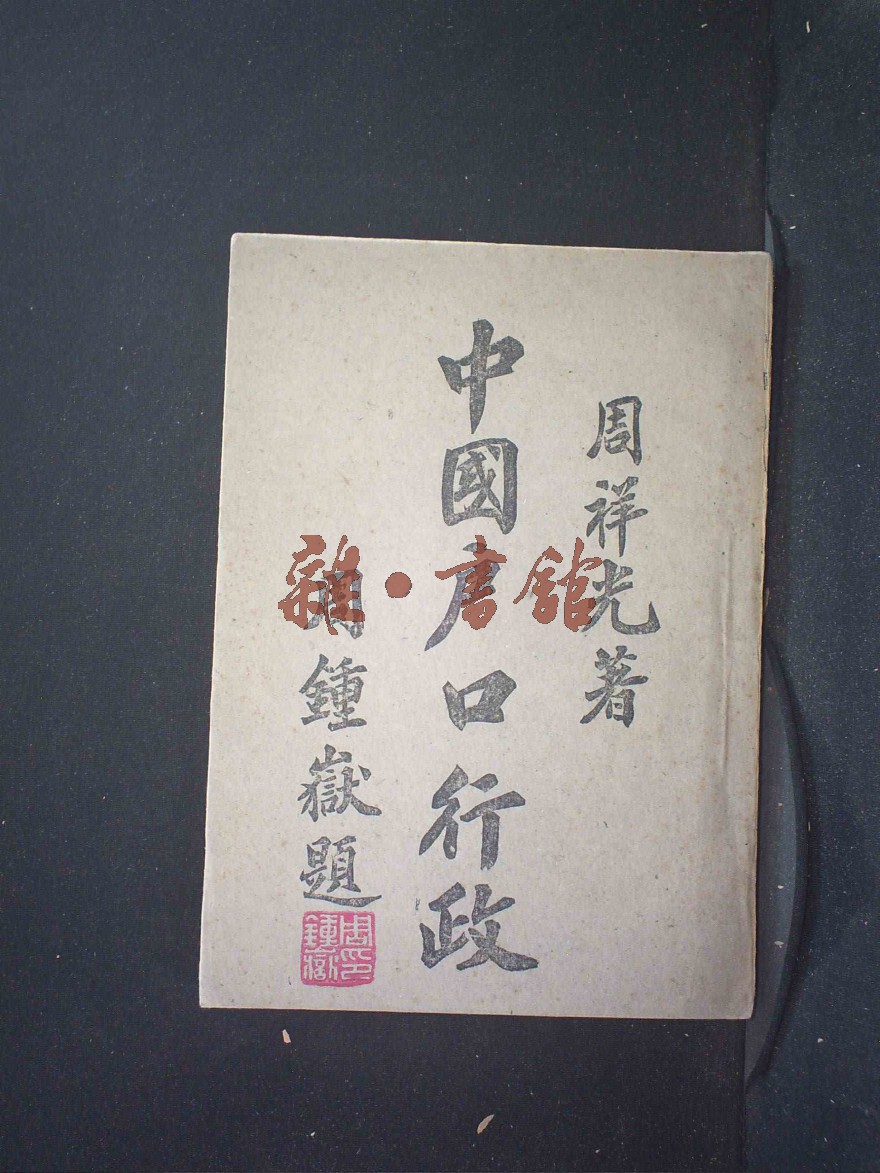 周祥光著
中國戶口行政
周鍾嶽題
周鍾嶽印
雜·書館